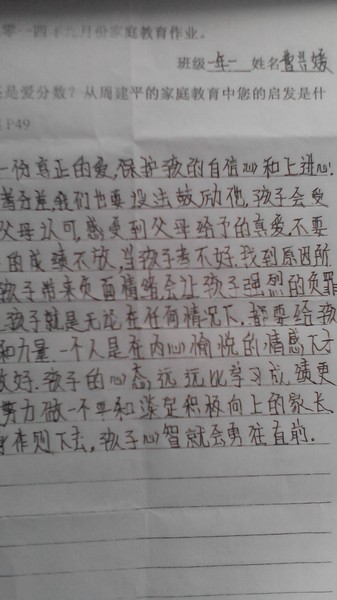 零一四年六月份家庭教育作业。
班级 一年一 姓名
是爱分数？从周建平的家庭教育中您的启发是什
P49
一份真正的爱,保护孩的自信心和上进心.
考分差,我们也要设法鼓励他,孩子会受
父母认可,感受到父母给予的真爱.不要
的成绩不放,当孩子考不好.找到原因所
孩子带来负面情绪会让孩子强烈的负罪
孩子就是无论在任何情况下,都要给孩
和力量.一个人是在内心愉悦的情感下才
好.孩子的心态,远远比学习成绩更
努力做一个平和淡定积极向上的家长
作则下去,孩子心智就会勇往直前.